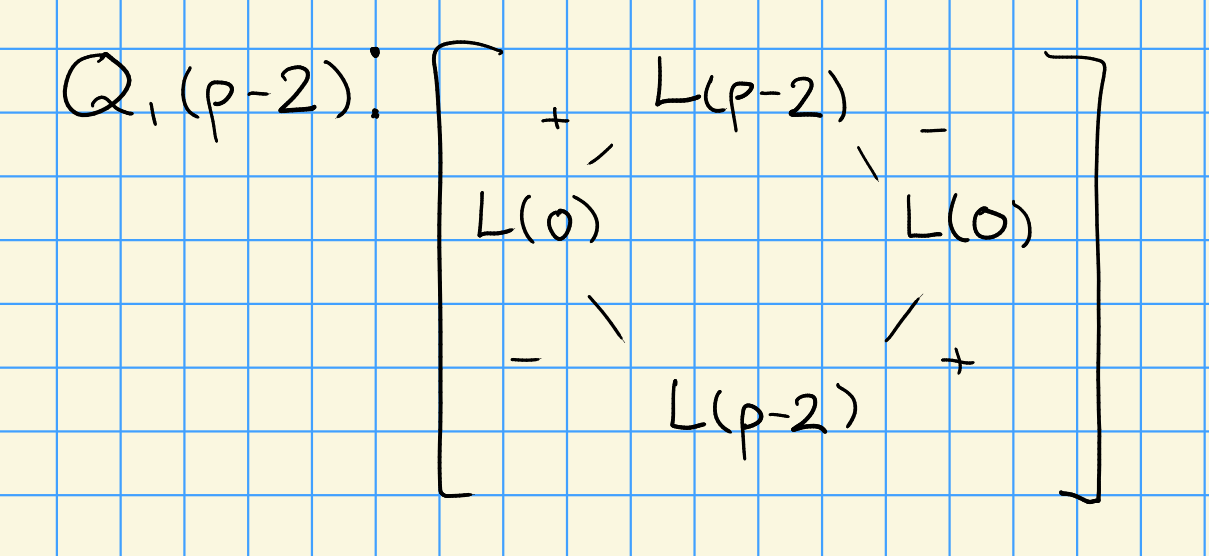 Q₁(p-2): L(p-2)
+ -
L(0) L(0)
- +
L(p-2)